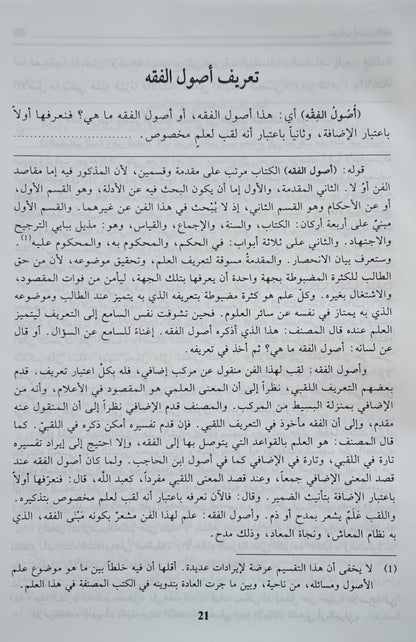 تعريف أصول الفقه
(أُصُولُ الفِقْهِ) أي: هذا أصول الفقه، أو أصول الفقه ما هي؟ فنعرفها أولاً
باعتبار الإضافة، وثانياً باعتبار أنه لقب لعلم مخصوص.
قوله: (أصول الفقه) الكتاب مرتب على مقدمة وقسمين، لأن المذكور فيه إما مقاصد
الفن أو لا. الثاني المقدمة، والأول إما أن يكون البحث فيه عن الأدلة، وهو القسم الأول،
أو عن الأحكام وهو القسم الثاني، إذ لا يُبْحث في هذا الفن عن غيرهما. والقسم الأول
مبنيٌ على أربعة أركان: الكتاب، والسنة، والإجماع، والقياس، وهو: مذيل ببابي الترجيح
والاجتهاد. والثاني على ثلاثة أبواب: في الحكم، والمحكوم به، والمحكوم عليه(١).
وستعرف بيان الانحصار. والمقدمةُ مسوقة لتعريف العلم، وتحقيق موضوعه، لأن من حق
الطالب للكثرة المضبوطة بجهة واحدة أن يعرفها بتلك الجهة، ليأمن من فوات المقصود،
والاشتغال بغيره. وكلُّ علم هو كثرة مضبوطة بتعريفه الذي به يتميز عند الطالب وموضوعه
الذي به يمتاز في نفسه عن سائر العلوم. فحين تشوفت نفس السامع إلى التعريف ليتميز
العلم عنده قال المصنف: هذا الذي أذكره أصول الفقه. إغناءً للسامع عن السؤال. أو قال
عن لسانه: أصول الفقه ما هي؟ ثم أخذ في تعريفه.
وأصول الفقه: لقب لهذا الفن منقول عن مركب إضافي، فله بكلّ اعتبار تعريف. قدم
بعضهم التعريف اللقبي، نظراً إلى أن المعنى العلمي هو المقصود في الأعلام، وأنه من
الإضافي بمنزلة البسيط من المركب. والمصنف قدم الإضافي نظراً إلى أن المنقول عنه
مقدم، وإلى أن الفقه مأخوذ في التعريف اللقبي. فإن قدم تفسيره أمكن ذكره في اللقبيّ. كما
قال المصنف: هو العلم بالقواعد التي يتوصل بها إلى الفقه، وإلا احتيج إلى إيراد تفسيره
تارة في اللقبي، وتارة في الإضافي كما في أصول ابن الحاجب. ولما كان أصول الفقه عند
قصد المعنى الإضافي جمعاً، وعند قصد المعنى اللقبي مفرداً، كعبد اللَّه، قال: فنعرّفها أولاً
باعتبار الإضافة بتأنيث الضمير. وقال: فالآن نعرفه باعتبار أنه لقب لعلم مخصوص بتذكيره.
واللقب عَلَمٌ يشعر بمدح أو ذم. وأصول الفقه: علم لهذا الفن مشعرٌ بكونه مَبْنَى الفقه، الذي
به نظام المعاش، ونجاة المعاد، وذلك مدح.
(١) لا يخفى أن هذا التقسيم عرضة لإيرادات عديدة. أقلها أن فيه خلطاً بين ما هو موضوع علم
الأصول ومسائله، من ناحية، وبين ما جرت العادة بتدوينه في الكتب المصنفة في هذا العلم.
21